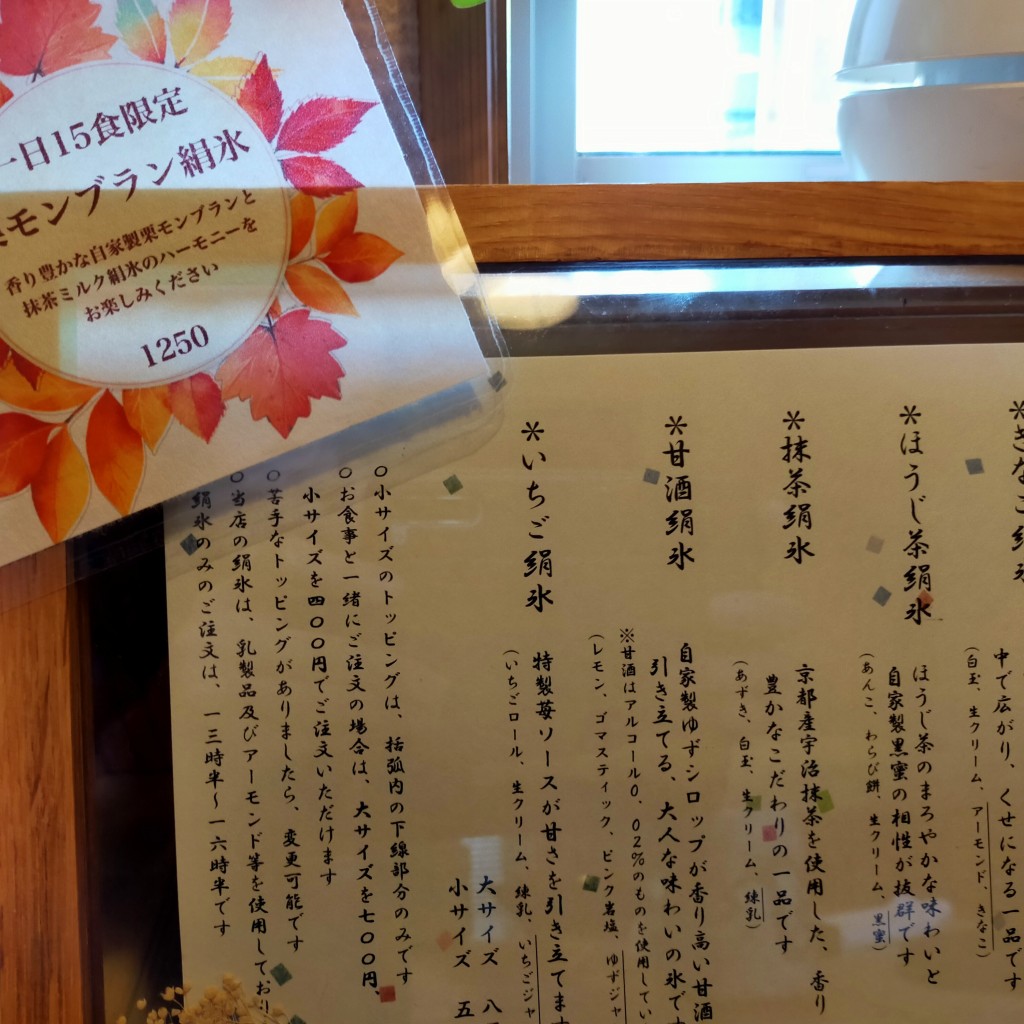 一日15食限定
モンブラン絹氷
香り豊かな自家製栗モンブランと
抹茶ミルク絹氷のハーモニーを
お楽しみください
1250
＊きなこ絹氷
中で広がり、くせになる一品です
（白玉、生クリーム、アーモンド、きなこ）
＊ほうじ茶絹氷
ほうじ茶のまろやかな味わいと
自家製黒蜜の相性が抜群です
（あんこ、わらび餅、生クリーム、黒蜜）
＊抹茶絹氷
京都産宇治抹茶を使用した、香り
豊かなこだわりの一品です
（あずき、白玉、生クリーム、練乳）
＊甘酒絹氷
自家製ゆずシロップが香り高い甘酒
引き立てる、大人な味わいの氷で
※甘酒はアルコール0、02％のものを使用してい
（レモン、ゴマスティック、ピンク岩塩、ゆずジャ
＊いちご絹氷
特製苺ソースが甘さを引き立てま
（いちごロール、生クリーム、練乳、いちごジャ
大サイズ 八
小サイズ 五
○小サイズのトッピングは、括弧内の下線部分のみです
○お食事と一緒にご注文の場合は、大サイズを七〇〇円、
小サイズを四〇〇円でご注文いただけます
○苦手なトッピングがありましたら、変更可能です
○当店の絹氷は、乳製品及びアーモンド等を使用しており
絹氷のみのご注文は、一三時半～一六時半です